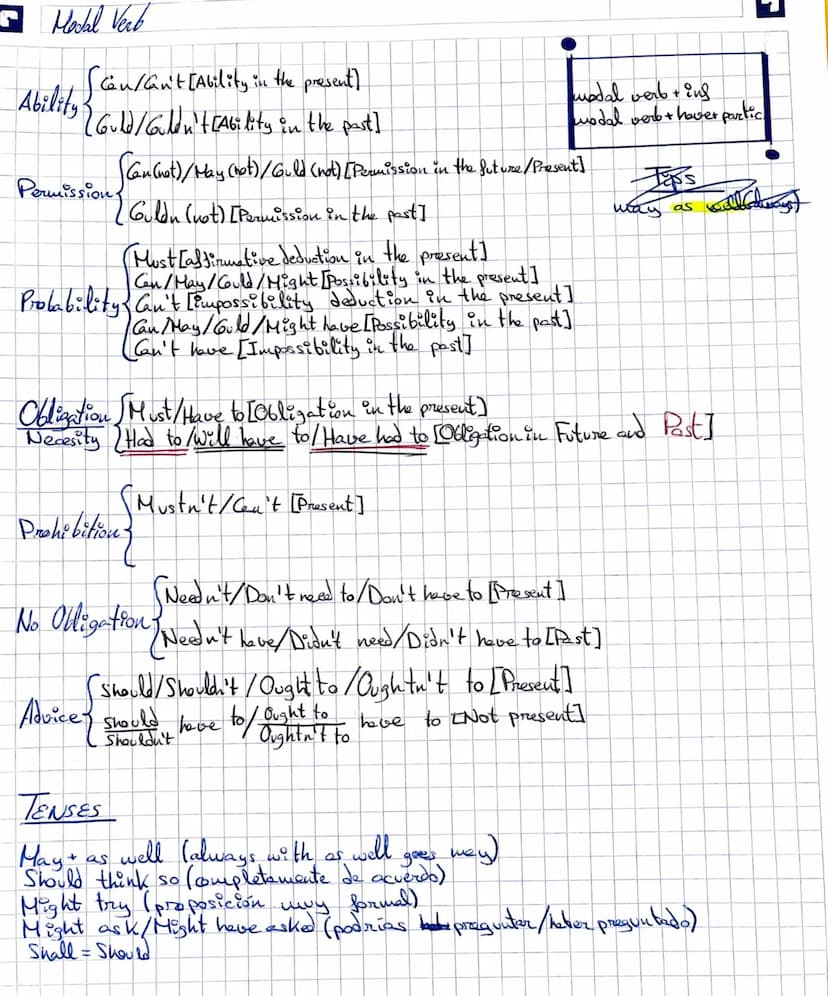 Modal Verb
modal verb + ing
modal verb + have + partic
Tips
may as well (always)
Ability
Can/Can't [Ability in the present]
Could/Couldn't [Ability in the past]
Permission
Can (not)/May (not)/Could (not) [Permission in the future/Present]
Couldn (not) [Permission in the past]
Probability
Must [affirmative deduction in the present]
Can/May/Could/Might [Possibility in the present]
Can't [impossibility deduction in the present]
Can/May/Could/Might have [Possibility in the past]
Can't have [Impossibility in the past]
Obligation
Necesity
Must/Have to [Obligation in the present]
Had to/Will have to/Have had to [Obligation in Future and Past]
Prohibition
Mustn't/Can't [Present]
No Obligation
Needn't/Don't need to/Don't have to [Present]
Needn't have/Didn't need/Didn't have to [Past]
Advice
Should/Shouldn't/Ought to/Oughtn't to [Present]
Should
Shouldn't
have to/
Ought to
Oughtn't to
have to [Not present]
TENSES
May + as well (always with as well goes may)
Should think so (completamente de acuerdo)
Might try (proposición muy formal)
Might ask/Might have asked (podrías preguntar/haber preguntado)
Shall = Should